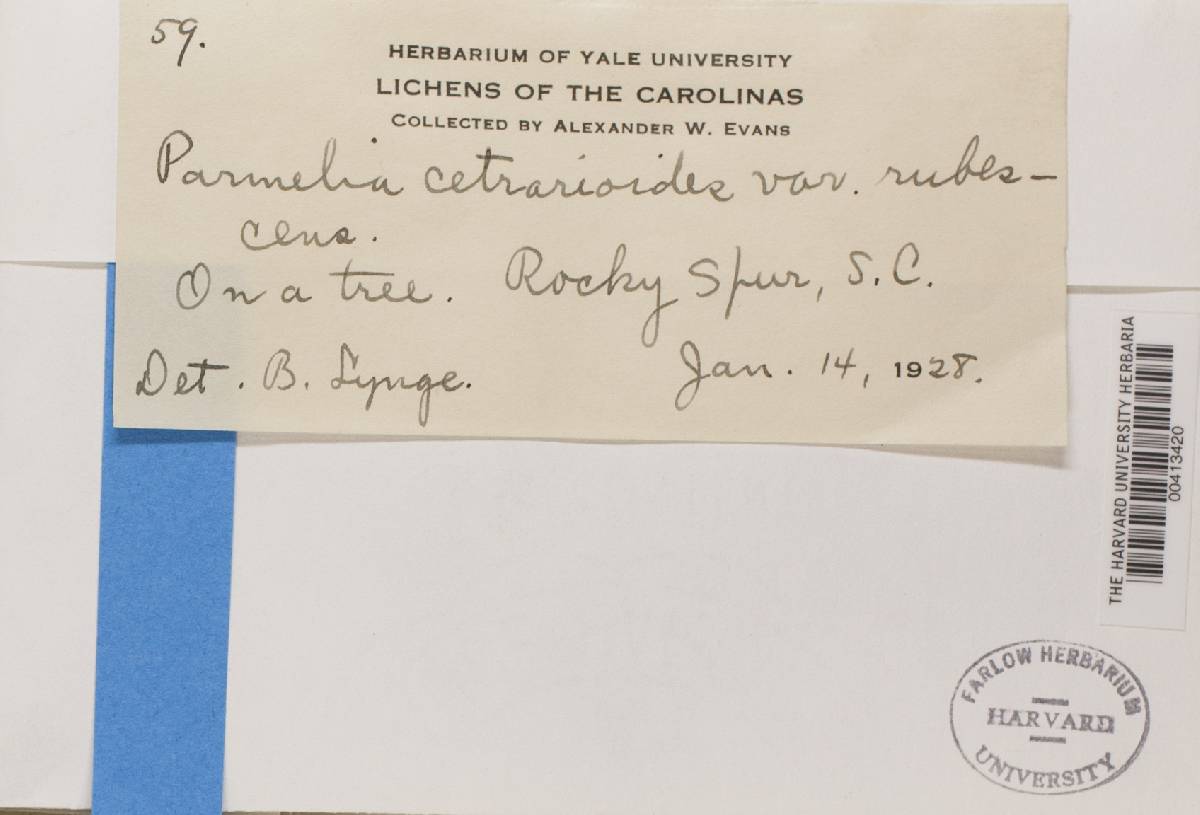 59.
HERBARIUM OF YALE UNIVERSITY
LICHENS OF THE CAROLINAS
COLLECTED BY ALEXANDER W. EVANS
Parmelia cetrarioides var. rubes-
cens.
On a tree. Rocky Spur, S.C.
Det. B. Lynge. Jan. 14, 1928.
THE HARVARD UNIVERSITY HERBARIA
00413420
FARLOW HERBARIUM
HARVARD
UNIVERSITY